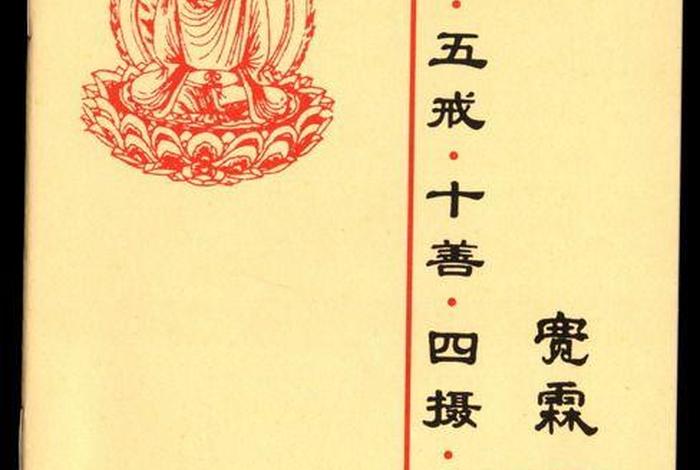 宽霖
·五戒·十善·四摄·